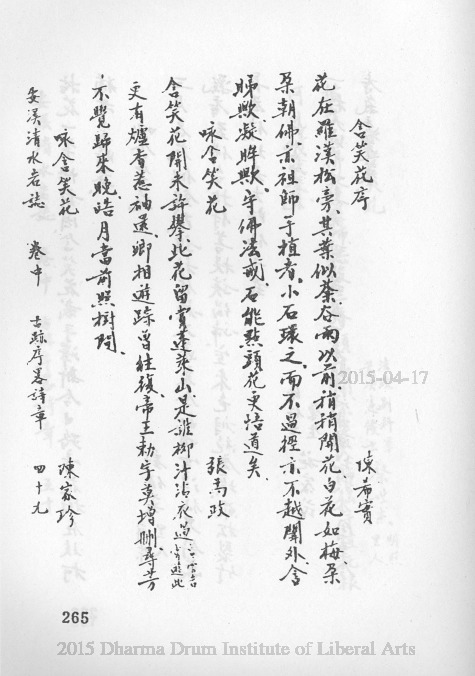 含笑花序
陳希實
花在羅漢松旁、其葉似茶、谷雨以前稍稍開花、白花如梅、朵
朵朝佛、亦祖師手植者、小石環之、而不過裡、亦不越閫外、含
睇歟、凝眸歟、守佛法戒、石能點頭、花更悟道矣、
詠含笑花
張馬政
含笑花開未許攀、此花留賞蓬萊山、是誰柳汁沾衣過、
更有爐香惹袖還、鄉相遊蹤曾往復、帝王勅字莫增刪、尋芳
不覺歸來晚、皓月當前照樹間、
詠含笑花
陳家珍
安溪清水岩誌 卷中 古跡序畧詩章 四十九
265
2015-04-17
2015 Dharma Drum Institute of Liberal Arts